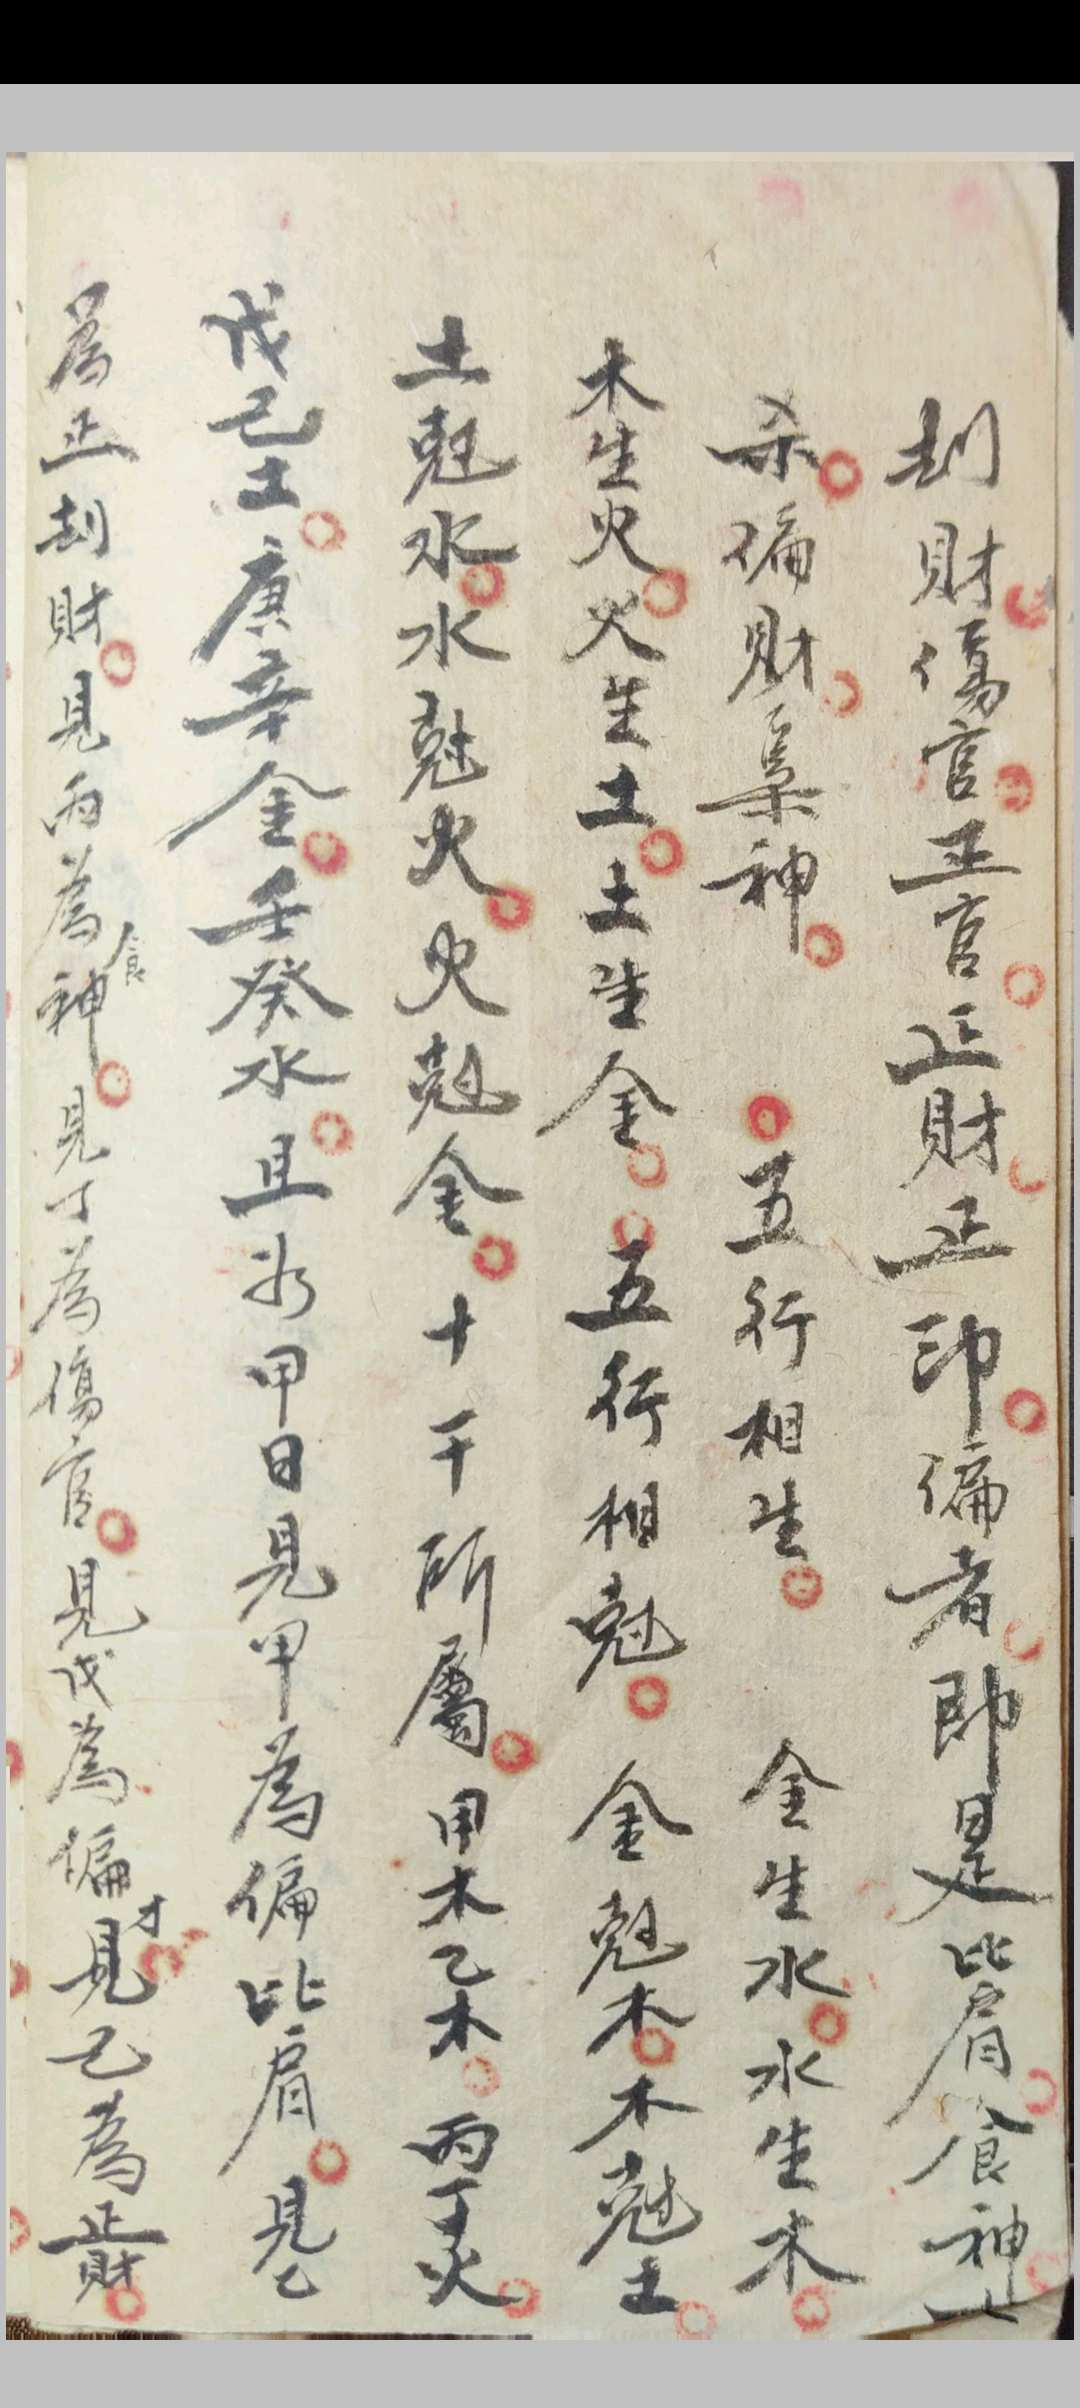 刦財傷官正官正財正印偏者即是比肩食神七
杀偏財梟神 五行相生 金生水水生木
木生火火生土土生金五行相尅 金尅木木尅土
土尅水水尅火火尅金十干所屬甲木乙木丙丁火
戊己土庚辛金壬癸水且如甲日見甲為偏比肩見乙
為正刦財見丙為食神見丁為傷官見戊為偏才見己為正財